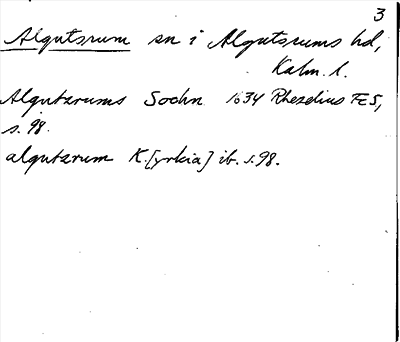 3
Algutsrum sn i Algutsrums hd,
Kalm. l.
Algutzrums Sochn 1634 Rhezelius FE5,
s. 98.
algutzrum K.[yrkia] ib. s. 98.